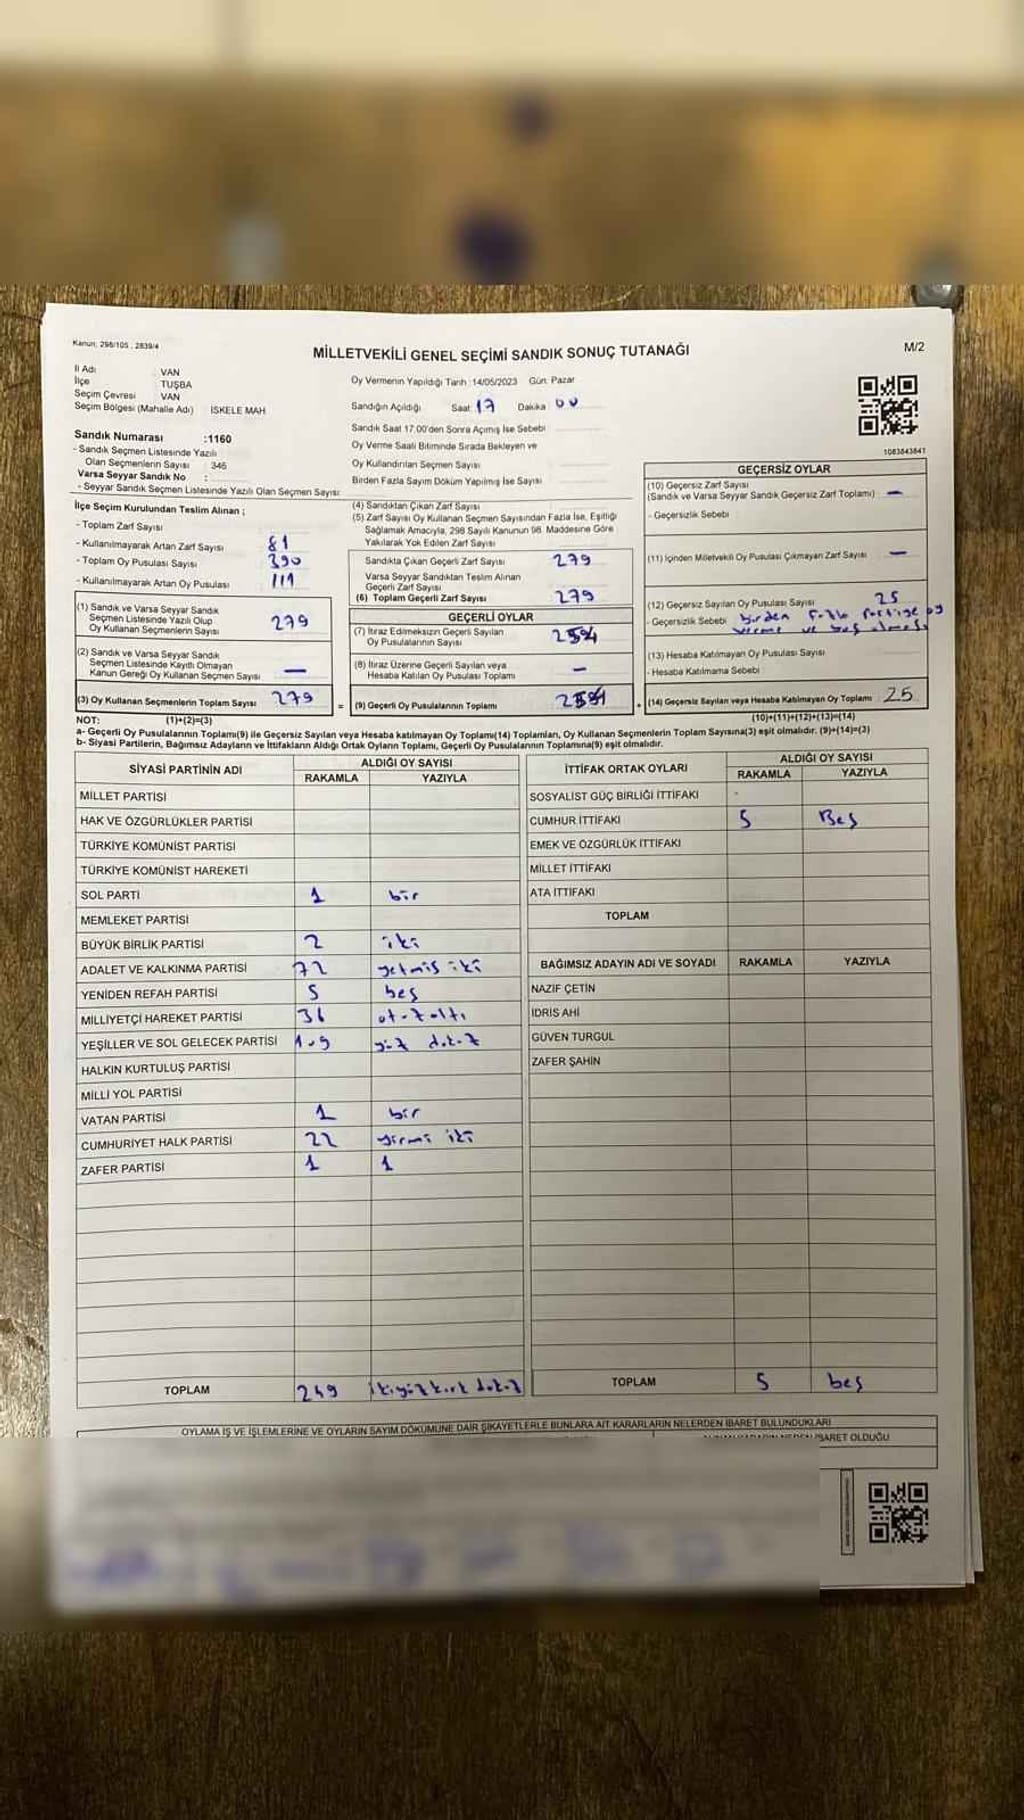 Kanun: 298/105 , 2839/4
MİLLETVEKİLİ GENEL SEÇİMİ SANDIK SONUÇ TUTANAĞI
M/2
İl Adı : VAN
İlçe : TUŞBA
Seçim Çevresi : VAN
Seçim Bölgesi (Mahalle Adı) : İSKELE MAH
Oy Vermenin Yapıldığı Tarih :14/05/2023 Gün: Pazar
Sandığın Açıldığı Saat: 17 Dakika 00
Sandık Saat 17:00'den Sonra Açımış İse Sebebi
Oy Verme Saati Bitiminde Sırada Bekleyen ve
Oy Kullandırılan Seçmen Sayısı
Birden Fazla Sayım Döküm Yapılmış İse Sayısı
1083843841
Sandık Numarası :1160
- Sandık Seçmen Listesinde Yazılı
Olan Seçmenlerin Sayısı : 346
Varsa Seyyar Sandık No :
- Seyyar Sandık Seçmen Listesinde Yazılı Olan Seçmen Sayısı:
İlçe Seçim Kurulundan Teslim Alınan ;
- Toplam Zarf Sayısı
- Kullanılmayarak Artan Zarf Sayısı 81
- Toplam Oy Pusulası Sayısı 390
- Kullanılmayarak Artan Oy Pusulası 111
(1) Sandık ve Varsa Seyyar Sandık
Seçmen Listesinde Yazılı Olup
Oy Kullanan Seçmenlerin Sayısı 279
(2) Sandık ve Varsa Seyyar Sandık
Seçmen Listesinde Kayıtlı Olmayan
Kanun Gereği Oy Kullanan Seçmen Sayısı —
(3) Oy Kullanan Seçmenlerin Toplam Sayısı 279
(4) Sandıktan Çıkan Zarf Sayısı
(5) Zarf Sayısı Oy Kullanan Seçmen Sayısından Fazla İse, Eşitliği
Sağlamak Amacıyla, 298 Sayılı Kanunun 98. Maddesine Göre
Yakılarak Yok Edilen Zarf Sayısı
Sandıkta Çıkan Geçerli Zarf Sayısı 279
Varsa Seyyar Sandıktan Teslim Alınan
Geçerli Zarf Sayısı
(6) Toplam Geçerli Zarf Sayısı 279
GEÇERLİ OYLAR
(7) İtiraz Edilmeksizin Geçerli Sayılan
Oy Pusulalarının Sayısı 254
(8) İtiraz Üzerine Geçerli Sayılan veya
Hesaba Katılan Oy Pusulası Toplamı —
= (9) Geçerli Oy Pusulalarının Toplamı +
GEÇERSİZ OYLAR
(10) Geçersiz Zarf Sayısı
(Sandık ve Varsa Seyyar Sandık Geçersiz Zarf Toplamı) —
- Geçersizlik Sebebi
(11) İçinden Milletvekili Oy Pusulası Çıkmayan Zarf Sayısı —
(12) Geçersiz Sayılan Oy Pusulası Sayısı 25
- Geçersizlik Sebebi birden fazla partiye oy
verme ve boş olması
(13) Hesaba Katılmayan Oy Pusulası Sayısı
- Hesaba Katılmama Sebebi
(14) Geçersiz Sayılan veya Hesaba Katılmayan Oy Toplamı 25
NOT: (1)+(2)=(3)
(10)+(11)+(12)+(13)=(14)
a- Geçerli Oy Pusulalarının Toplamı(9) ile Geçersiz Sayılan veya Hesaba katılmayan Oy Toplamı(14) Toplamları, Oy Kullanan Seçmenlerin Toplam Sayısına(3) eşit olmalıdır. (9)+(14)=(3)
b- Siyasi Partilerin, Bağımsız Adayların ve İttifakların Aldığı Ortak Oyların Toplamı, Geçerli Oy Pusulalarının Toplamına(9) eşit olmalıdır.
SİYASİ PARTİNİN ADI
ALDIĞI OY SAYISI
RAKAMLA YAZIYLA
MİLLET PARTİSİ
HAK VE ÖZGÜRLÜKLER PARTİSİ
TÜRKİYE KOMÜNİST PARTİSİ
TÜRKİYE KOMÜNİST HAREKETİ
SOL PARTİ 1 bir
MEMLEKET PARTİSİ
BÜYÜK BİRLİK PARTİSİ 2 iki
ADALET VE KALKINMA PARTİSİ 72 yetmis iki
YENİDEN REFAH PARTİSİ 5 beş
MİLLİYETÇİ HAREKET PARTİSİ 36 otuzaltı
YEŞİLLER VE SOL GELECEK PARTİSİ 109 yüz dokuz
HALKIN KURTULUŞ PARTİSİ
MİLLİ YOL PARTİSİ
VATAN PARTİSİ 1 bir
CUMHURİYET HALK PARTİSİ 22 yirmi iki
ZAFER PARTİSİ 1 1
TOPLAM 249 ikiyüzkırk dokuz
İTTİFAK ORTAK OYLARI
ALDIĞI OY SAYISI
RAKAMLA YAZIYLA
SOSYALİST GÜÇ BİRLİĞİ İTTİFAKI -
CUMHUR İTTİFAKI 5 Beş
EMEK VE ÖZGÜRLÜK İTTİFAKI
MİLLET İTTİFAKI
ATA İTTİFAKI
TOPLAM
BAĞIMSIZ ADAYIN ADI VE SOYADI RAKAMLA YAZIYLA
NAZİF ÇETİN
İDRİS AHİ
GÜVEN TURGUL
ZAFER ŞAHİN
TOPLAM 5 beş
OYLAMA İŞ VE İŞLEMLERİNE VE OYLARIN SAYIM DÖKÜMÜNE DAİR ŞİKAYETLERLE BUNLARA AİT KARARLARIN NELERDEN İBARET BULUNDUKLARI
İBARET OLDUĞU